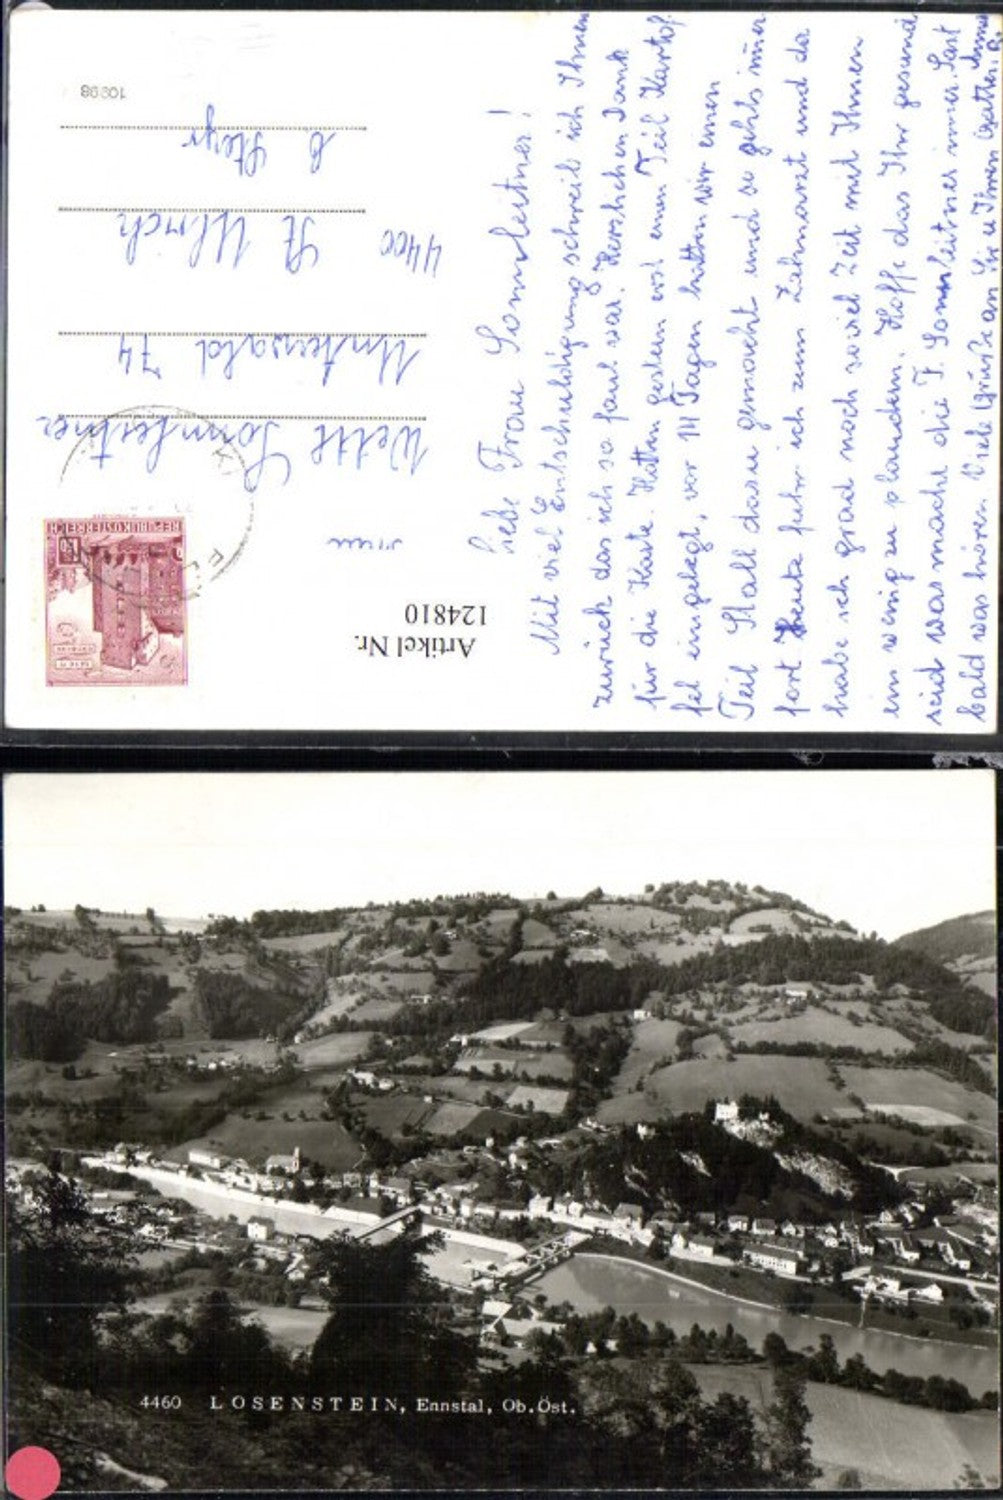 Liebe Frau Sonnleitner!
Mit viel Entschuldigung schreib ich Ihnen
zurück das ich so faul war. Herzlichen Dank
für die Karte. Hatten gestern erst einen Teil Kartof
fel eingelegt, vor 14 Tagen hatten wir einen
Teil Stall dazu gemacht und so gehts imer
fort Heute fuhr ich zum Zahnarzt und da
habe ich grad noch soviel Zeit mit Ihnen
ein wenig zu plaudern. Hoffe das Ihr gesund
seid was macht die F. Sonnleitner immer. Last
bald was hören. Viele Grüße an Sie u Ihren
Artikel Nr.
124810
REPUBLIK ÖSTERREICH
Sonnleitner
Unterwald 74
4400 St Ulrich
b. Steyr
4460 LOSENSTEIN, Ennstal, Ob.Öst.